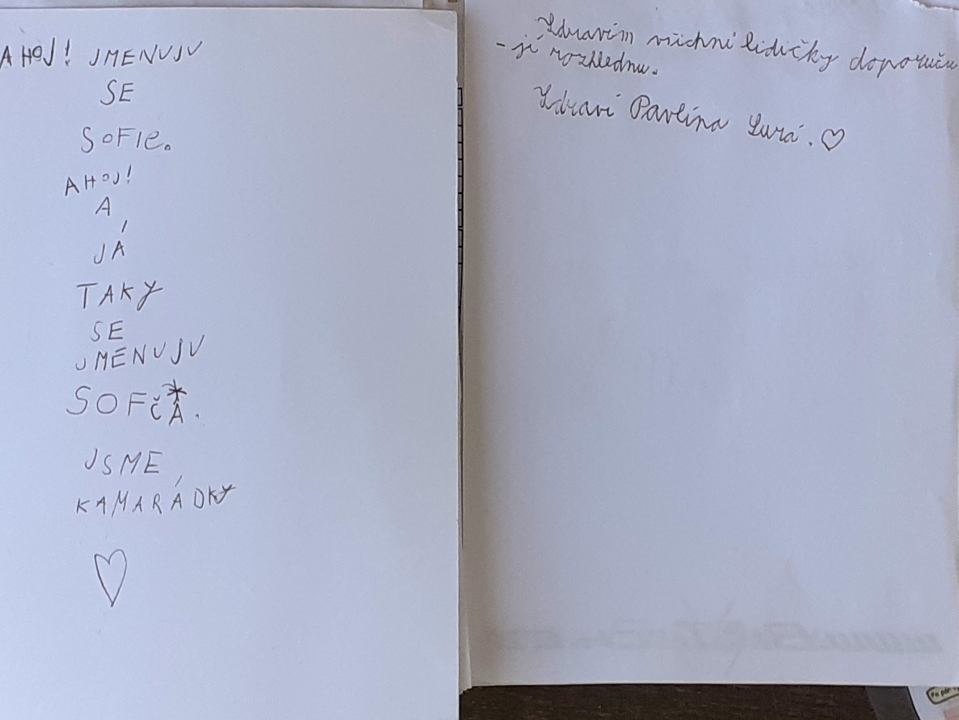 AHOJ! JMENUJU
SE
SOFIE.
AHOJ!
A
JÁ
TAKY
SE
JMENUJU
SOFČA.
JSME
KAMARÁDKY
Zdravím všichni lidičky doporuču
-ji rozhlednu.
Zdraví Pavlína